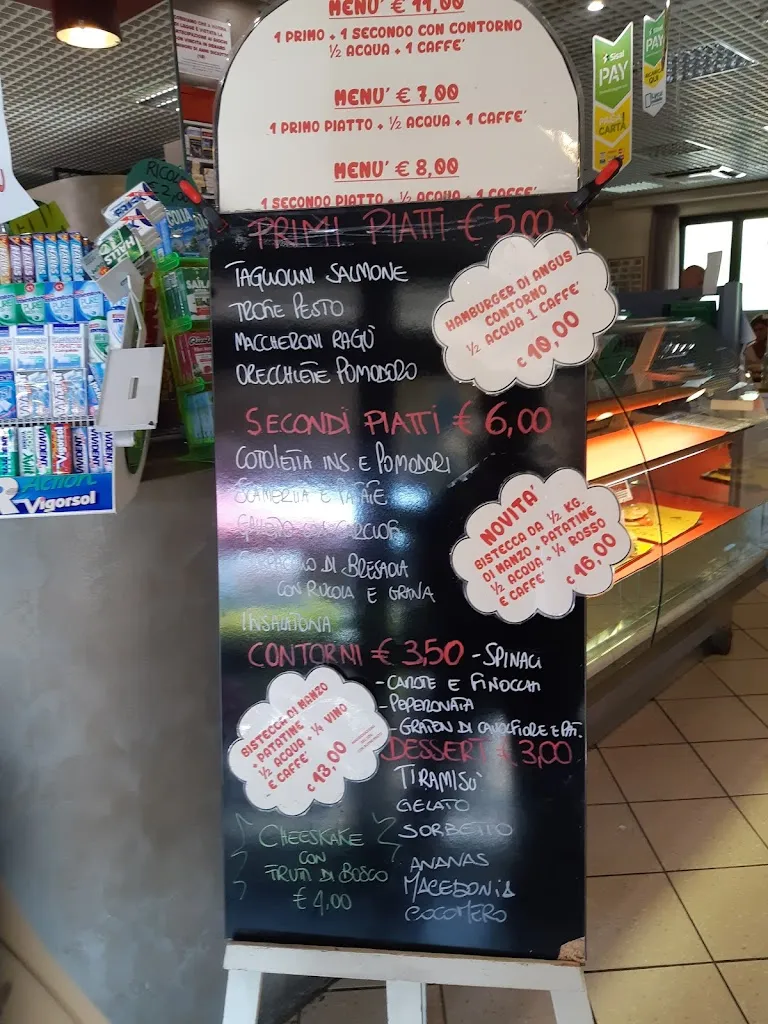 MENU' € 11,00
1 PRIMO + 1 SECONDO CON CONTORNO
½ ACQUA + 1 CAFFE'
MENU' € 7,00
1 PRIMO PIATTO + ½ ACQUA + 1 CAFFE'
MENU' € 8,00
1 SECONDO PIATTO + ½ ACQUA + 1 CAFFE'
PRIMI PIATTI € 5,00
TAGLIOLINI SALMONE
TROFIE PESTO
MACCHERONI RAGÙ
ORECCHIETTE POMODORO
HAMBURGER DI ANGUS
CONTORNO
½ ACQUA 1 CAFFE'
€ 10,00
SECONDI PIATTI € 6,00
COTOLETTA INS. E POMODORI
SCAMERITA E PATATE
DI BRESAOLA
CON RUCOLA E GRANA
INSALATONA
NOVITA'
BISTECCA DA ½ KG.
DI MANZO + PATATINE
½ ACQUA + ¼ ROSSO
E CAFFE'
€ 16,00
CONTORNI € 3,50 - SPINACI
- CAROTE E FINOCCHI
- PEPERONATA
- GRATEN DI CAVOLFIORE E PAT.
BISTECCA DI MANZO
+ PATATINE
½ ACQUA + ¼ VINO
E CAFFE'
€ 13,00
DESSERT € 3,00
TIRAMISÙ
GELATO
SORBETTO
ANANAS
MACEDONIA
COCOMERO
CHEESKAKE
CON
FRUTTI DI BOSCO
€ 4,00
Sisal
PAY
PAGA CON
CARTA
Sisal
PAY
Vigorsol